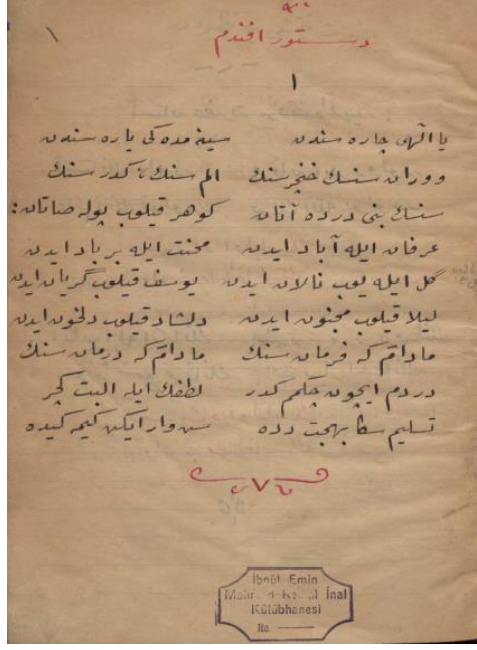 ١
دستور افندم
١
يا الهى چاره سندن   سينه مده كى ياره سندن
ووران سنسك خنجر سنك   الم سنك كدر سنك
سنسك بنى درده آتان   كوهر قيلوب پوله صاتان
عرفان ايله آباد ايدن   محنت ايله بر باد ايدن
گل ايله يوب نالان ايدن   يوسف قيلوب گريان ايدن
ليلا قيلوب مجنون ايدن   دلشاد قيلوب دلخون ايدن
مادامكه فرمان سنك   مادامكه درمان سنك
دردم ايچون چكمم كدر   لطفك ايله البت گچر
تسليم سكا بهجت دده   سن وار ايكن كيمه گيده
٧
İbnül Emin
Kemal İnal
Kütübhanesi
No